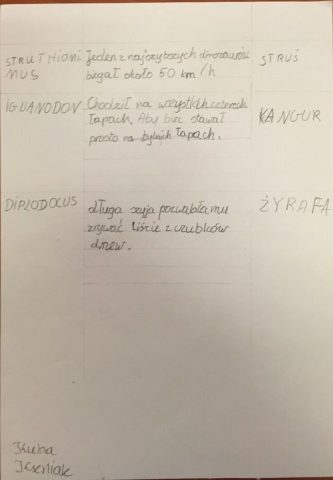 STRUTHIONI
MUS
Jeden z najszybszych dinozaurów
biegał około 50 km/h
STRUŚ
IGUANODON
Chodził na wszystkich czterech
łapach. Aby biec stawał
prosto na tylnich łapach.
KANGUR
DIPLODOCUS
długa szyja pozwalała mu
zrywać liście z czubków
drzew.
ŻYRAFA